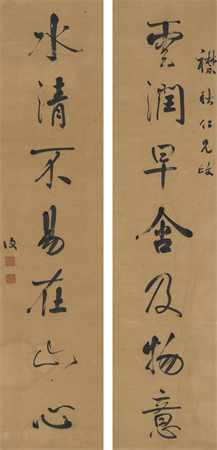 襟秋仁兄政
雲潤早含及物意
水清不易在山心